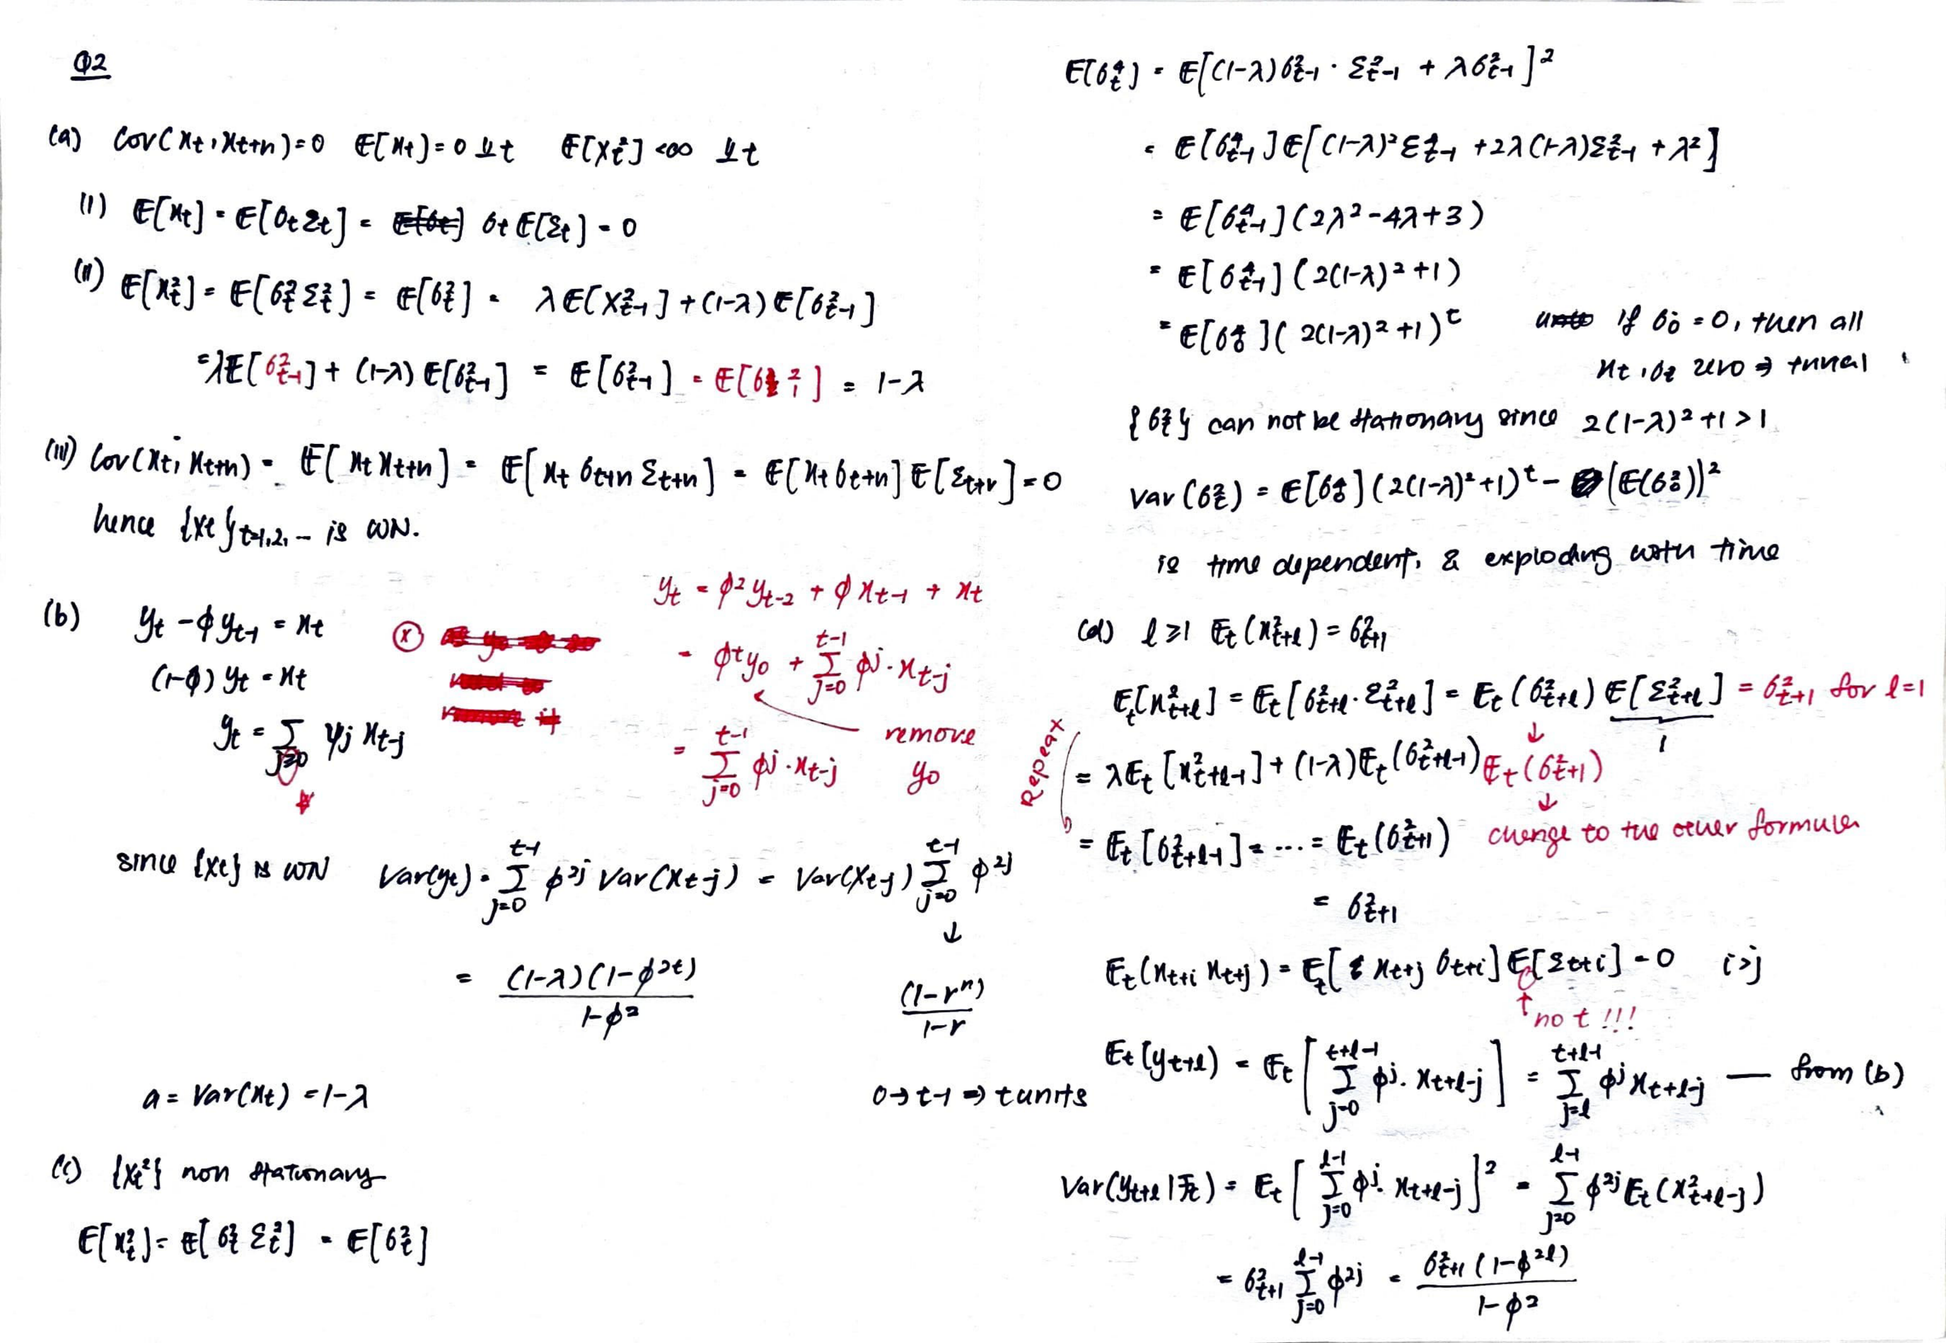 Q2
(a) Cov(xt, xt+n)=0 E[xt]=0 ∀t E[xt²]<∞ ∀t
(i) E[xt] = E[σt εt] = E[σt] σt E[εt] = 0
(ii) E[xt²] = E[σt² εt²] = E[σt²] = λE[xt-1²] + (1-λ) E[σt-1²]
= λE[σt-1²] + (1-λ) E[σt-1²] = E[σt-1²] = E[σ1²] = 1-λ
(iii) Cov(xt, xt+n) = E[xt xt+n] = E[xt σt+n εt+n] = E[xt σt+n] E[εt+n] = 0
hence {xt}t=1,2,... is WN.
(b) yt - φyt-1 = xt
(1-φ) yt = xt
yt = Σj≥0 ψj xt-j
yt = φ² yt-2 + φ xt-1 + xt
= φ^t y0 + Σ_{j=0}^{t-1} φ^j · xt-j
= Σ_{j=0}^{t-1} φ^j · xt-j
remove
y0
since {xt} is WN Var(yt) = Σ_{j=0}^{t-1} φ^{2j} Var(xt-j) = Var(xt-j) Σ_{j=0}^{t-1} φ^{2j}
= (1-λ)(1-φ^{2t}) / 1-φ²
↓
(1-r^n) / 1-r
a = Var(xt) = 1-λ
0→t-1 ⇒ t units
(c) {xt²} non stationary
E[xt²] = E[σt² εt²] = E[σt²]
E[σt⁴] = E[(1-λ)σt-1² · εt-1² + λσt-1²]²
= E[σt-1⁴] E[(1-λ)² εt-1⁴ + 2λ(1-λ)εt-1² + λ²]
= E[σt-1⁴](2λ²-4λ+3)
= E[σt-1⁴](2(1-λ)²+1)
= E[σ0⁴](2(1-λ)²+1)^t
if σ0² = 0, then all
xt, σt zero ⇒ trivial
{σt²} can not be stationary since 2(1-λ)²+1 > 1
Var(σt²) = E[σ0⁴](2(1-λ)²+1)^t - (E(σ0²))²
is time dependent, & exploding with time
(d) l≥1 Et(xt+l²) = σt+1²
Et[xt+l²] = Et[σt+l² · εt+l²] = Et(σt+l²) E[εt+l²] = σt+1² for l=1
1
Repeat
= λEt[xt+l-1²] + (1-λ)Et(σt+l-1²) Et(σt+1²)
= Et[σt+l-1²] = ... = Et(σt+1²) change to the other formula
= σt+1²
Et(xt+i xt+j) = Et[xt+j σt+i] E[εt+i] = 0 i>j
no t !!!
Et(yt+l) = Et[Σ_{j=0}^{t+l-1} φ^j · xt+l-j] = Σ_{j=l}^{t+l-1} φ^j xt+l-j — from (b)
Var(yt+l | Ft) = Et[Σ_{j=0}^{l-1} φ^j · xt+l-j]² = Σ_{j=0}^{l-1} φ^{2j} Et(xt+l-j²)
= σt+1² Σ_{j=0}^{l-1} φ^{2j} = σt+1²(1-φ^{2l}) / 1-φ²